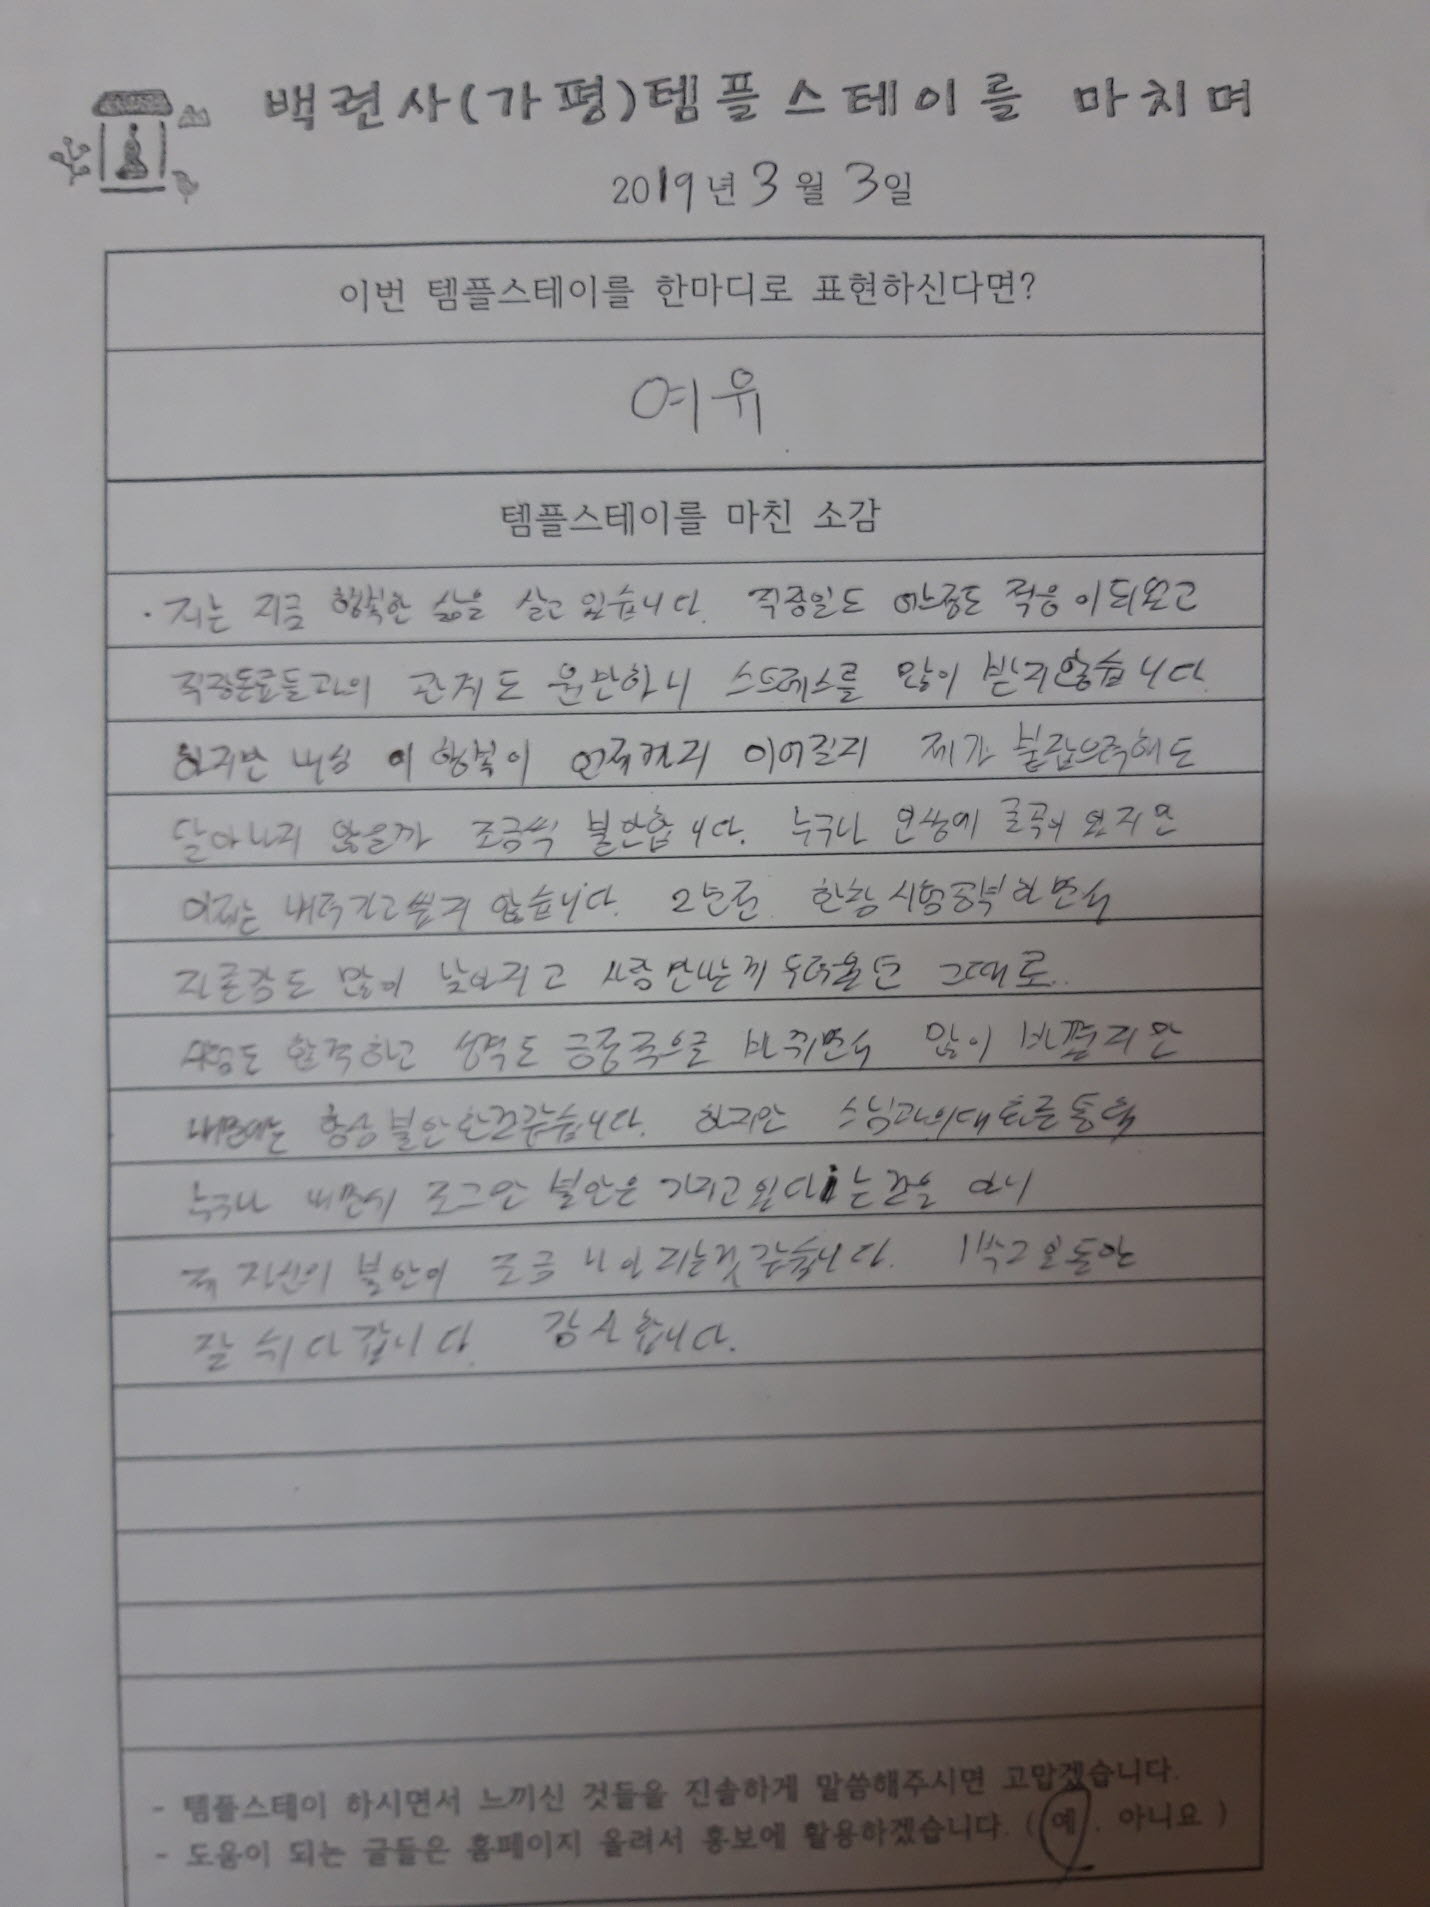 백련사(가평)템플스테이를 마치며
2019년 3월 3일
이번 템플스테이를 한마디로 표현하신다면?
여유
템플스테이를 마친 소감
· 저는 지금 행복한 삶을 살고 있습니다. 직장일도 어느정도 적응이되었고
직장동료들과의 관계도 원만하니 스트레스를 많이 받지않습니다.
하지만 내심 이 행복이 언제까지 이어질지 제가 붙잡으려해도
달아나지 않을까 조금씩 불안합니다. 누구나 인생에 굴곡이 있지만
이제는 내려가고싶지 않습니다. 2년전 한창 시험공부하면서
자존감도 많이 낮아지고 사람만나는게 두려울던 그때로..
사람도 환경하고 성격도 긍정적으로 바뀌면서 많이 바꼈지만
내면에는 항상 불안한것같습니다. 하지만 스님과의대화를통해
누구나 내면에 조그만 불안은 가지고있다는것을 아니
제 자신의 불안이 조금 나아지는것같습니다. 1박2일동안
잘 쉬다갑니다. 감사합니다.
- 템플스테이 하시면서 느끼신 것들을 진솔하게 말씀해주시면 고맙겠습니다.
- 도움이 되는 글들은 홈페이지 올려서 홍보에 활용하겠습니다. ( 예 , 아니요 )